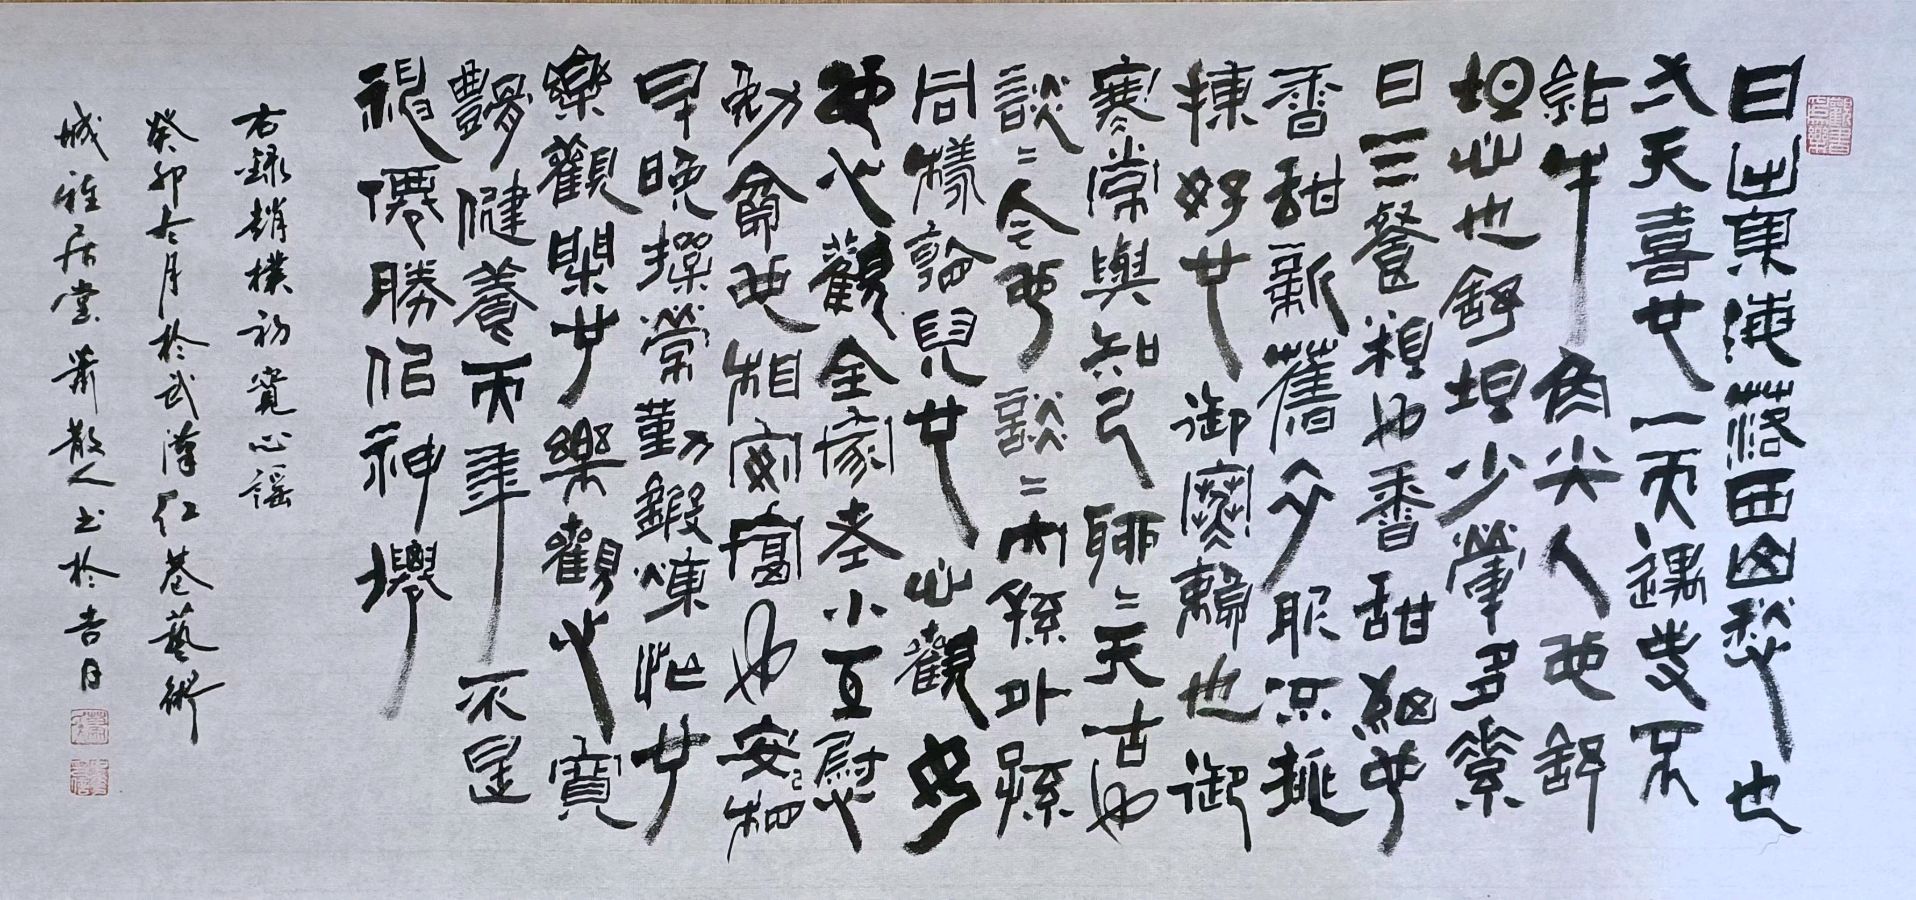 日出東海落西山愁也
弌天喜也一天遇事不
鉆牛角尖人也舒
坦心也舒坦少葷多素
日三餐粗也香甜細也
香甜新舊衣服不挑
揀好也御寒賴也御
寒常與知己聊〻天古也
談〻今也談〻內孫外孫
同樣兒也心觀女
也心觀全家老小互慰
勉貧也相安富也安相
早晚操勞勤鍛煉忙也
樂觀閑也樂觀心寬
體健養天年不是
神僊勝似神
右錄趙樸初寬心謠
癸卯六月於武漢紅巷藝術
城雅居堂蕭散人書於吉日